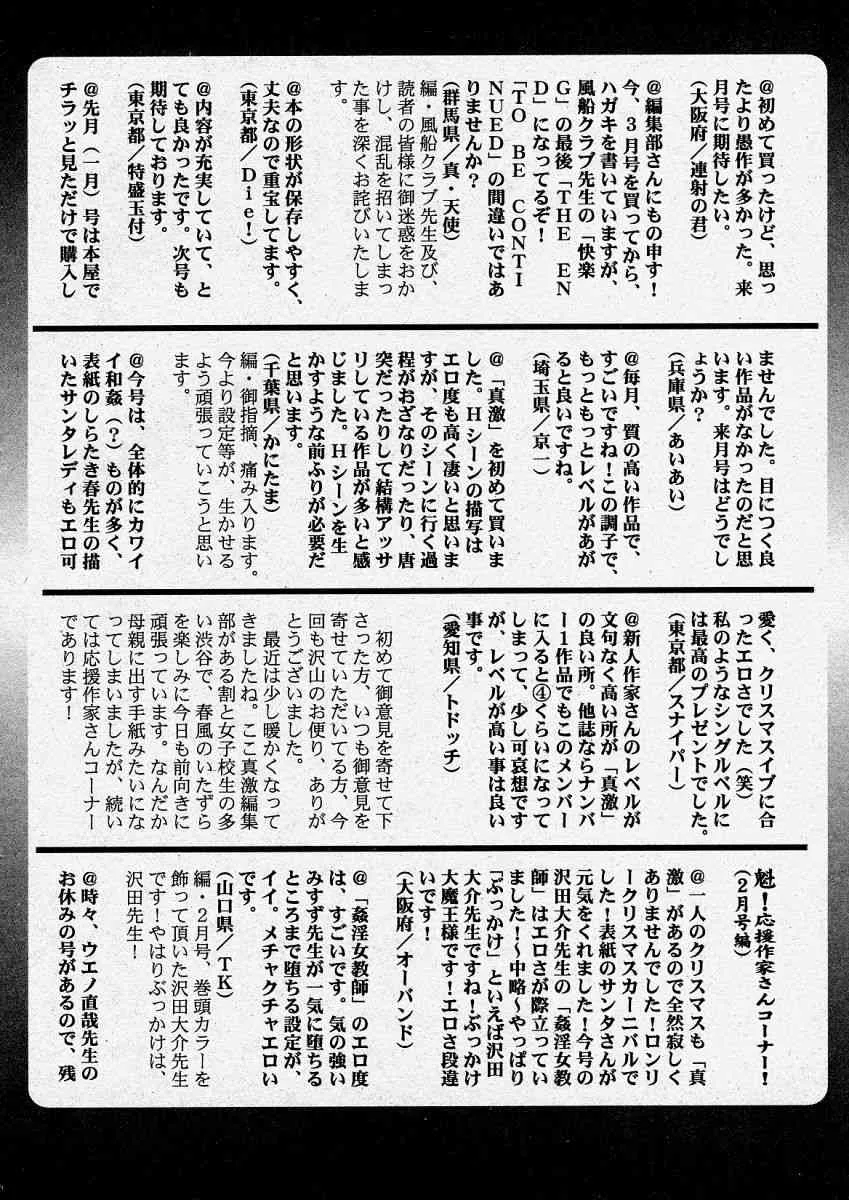 @初めて買ったけど、思っ
たより愚作が多かった。来
月号に期待したい。
(大阪府/連射の君)
@編集部さんにもの申す!
今、3月号を買ってから、
ハガキを書いていますが、
風船クラブ先生の「快楽
G」の最後「THE EN
D」になってるぞ!
「TO BE CONTI
NUED」の間違いではあ
りませんか?
(群馬県/真・天使)
編・風船クラブ先生及び、
読者の皆様に御迷惑をおか
けし、混乱を招いてしまっ
た事を深くお詫びいたしま
す。
@本の形状が保存しやすく、
丈夫なので重宝してます。
(東京都/Die!)
@内容が充実していて、と
ても良かったです。次号も
期待しております。
(東京都/特盛玉付)
@先月(一月)号は本屋で
チラッと見ただけで購入し
ませんでした。目につく良
い作品がなかったのだと思
います。来月号はどうでし
ょうか?
(兵庫県/あいあい)
@毎月、質の高い作品で、
すごいですね!この調子で、
もっともっとレベルがあが
ると良いですね。
(埼玉県/京一)
@「真激」を初めて買いま
した。Hシーンの描写は
エロ度も高く凄いと思いま
すが、そのシーンに行く過
程がおざなりだったり、唐
突だったりして結構アッサ
リしている作品が多いと感
じました。Hシーンを生
かすような前ふりが必要だ
と思います。
(千葉県/かにたま)
編・御指摘、痛み入ります。
今より設定等が、生かせる
よう頑張っていこうと思い
ます。
@今号は、全体的にカワイ
イ和姦(?)ものが多く、
表紙のしらたき春先生の描
いたサンタレディもエロ可
愛く、クリスマスイブに合
ったエロさでした(笑)
私のようなシングルベルに
は最高のプレゼントでした。
(東京都/スナイパー)
@新人作家さんのレベルが
文句なく高い所が「真激」
の良い所。他誌ならナンバ
ー1作品でもこのメンバー
に入ると④くらいになって
しまって、少し可哀想です
が、レベルが高い事は良い
事です。
(愛知県/トドッチ)
初めて御意見を寄せて下
さった方、いつも御意見を
寄せていただいてる方、今
回も沢山のお便り、ありが
とうございました。
最近は少し暖かくなって
きましたね。ここ真激編集
部がある割と女子校生の多
い渋谷で、春風のいたずら
を楽しみに今日も前向きに
頑張っています。なんだか
母親に出す手紙みたいにな
ってしまいましたが、続い
ては応援作家さんコーナー
であります!
魁!!応援作家さんコーナー!
(2月号編)
@一人のクリスマスも「真
激」があるので全然寂しく
ありませんでした!ロンリ
ークリスマスカーニバルで
した!表紙のサンタさんが
元気をくれました!今号の
沢田大介先生の「姦淫女教
師」はエロさが際立ってい
ました!〜中略〜やっぱり
「ぶっかけ」といえば沢田
大介先生ですね!ぶっかけ
大魔王様です!エロさ段違
いです!
(大阪府/オーバンド)
@「姦淫女教師」のエロ度
は、すごいです。気の強い
みすず先生が一気に堕ちる
ところまで堕ちる設定が、
イイ。メチャクチャエロい
です。
(山口県/TK)
編・2月号、巻頭カラーを
飾って頂いた沢田大介先生
です!やはりぶっかけは、
沢田先生!
@時々、ウエノ直哉先生の
お休みの号があるので、残